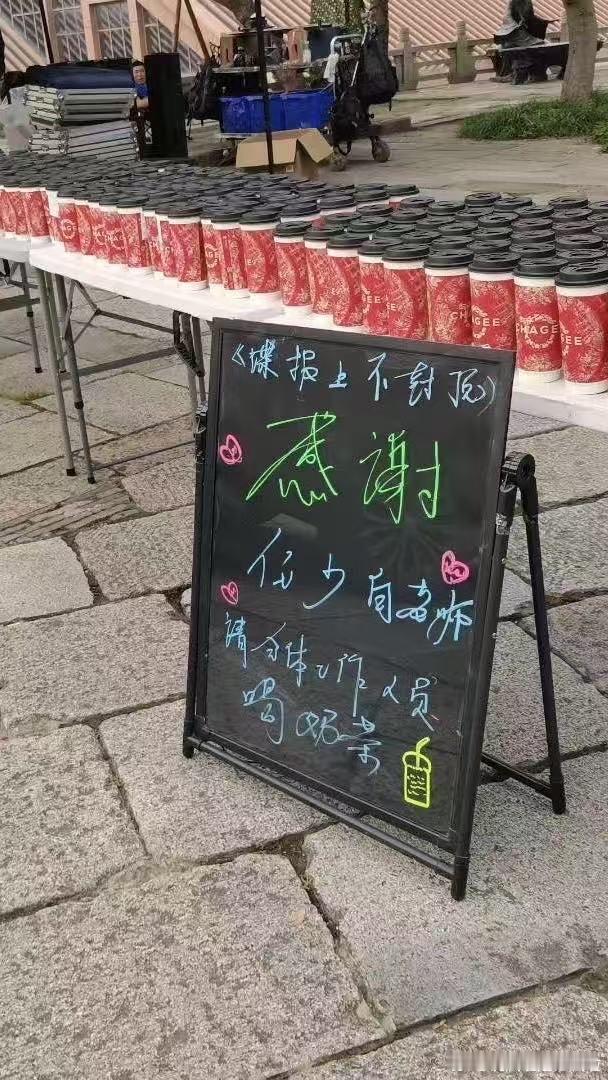 《谍报上不封顶》
感谢
任少白老师
请全体工作人员
喝奶茶
CHAGEE
CHAGEE
CHAGEE